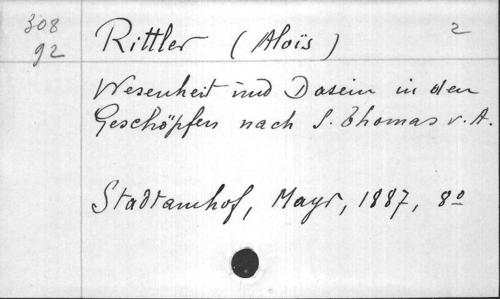 308
92
Rittler (Aloïs) 2
Wesenheit und Dasein in den
Geschöpfen nach S. Thomas v. A.
Stadtamhof, Mayr, 1887, 8º